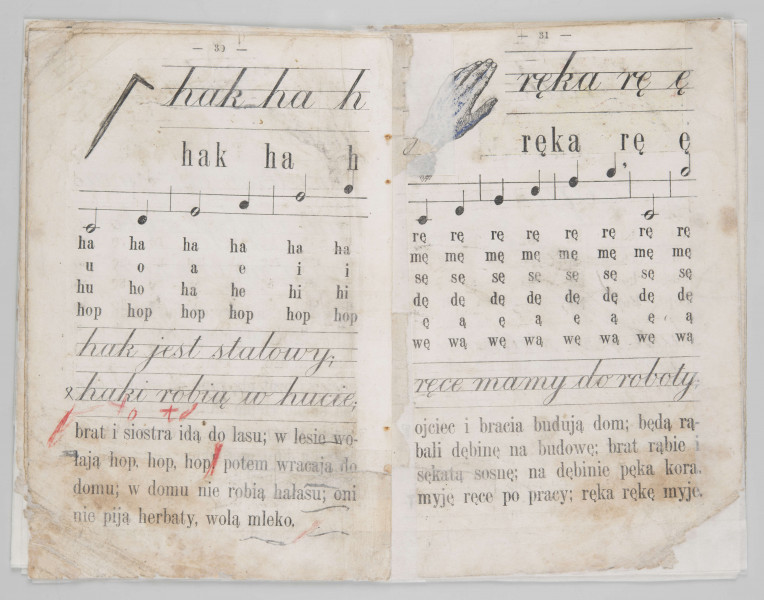 — 30 —
hak ha h
hak ha h
ha ha ha ha ha ha
u o a e i i
hu ho ha he hi hi
hop hop hop hop hop hop
hak jest stalowy;
haki robią w hucie;
brat i siostra idą do lasu; w lesie wo-
łają hop, hop, hop! potem wracają do
domu; w domu nie robią hałasu; oni
nie piją herbaty, wolą mleko.
— 31 —
ręka rę ę
ręka rę ę
rę rę rę rę rę rę rę rę
mę mę mę mę mę mę mę mę
sę sę sę sę sę sę sę sę
dę dę dę dę dę dę dę dę
ę ą ę ą ę ą ę ą
wę wą wę wą wę wą wę wą
ręce mamy do roboty;
ojciec i bracia budują dom; będą rą-
bali dębinę na budowę; brat rąbie i
sękatą sosnę; na dębinie pęka kora.
myję ręce po pracy; ręka rękę myje.